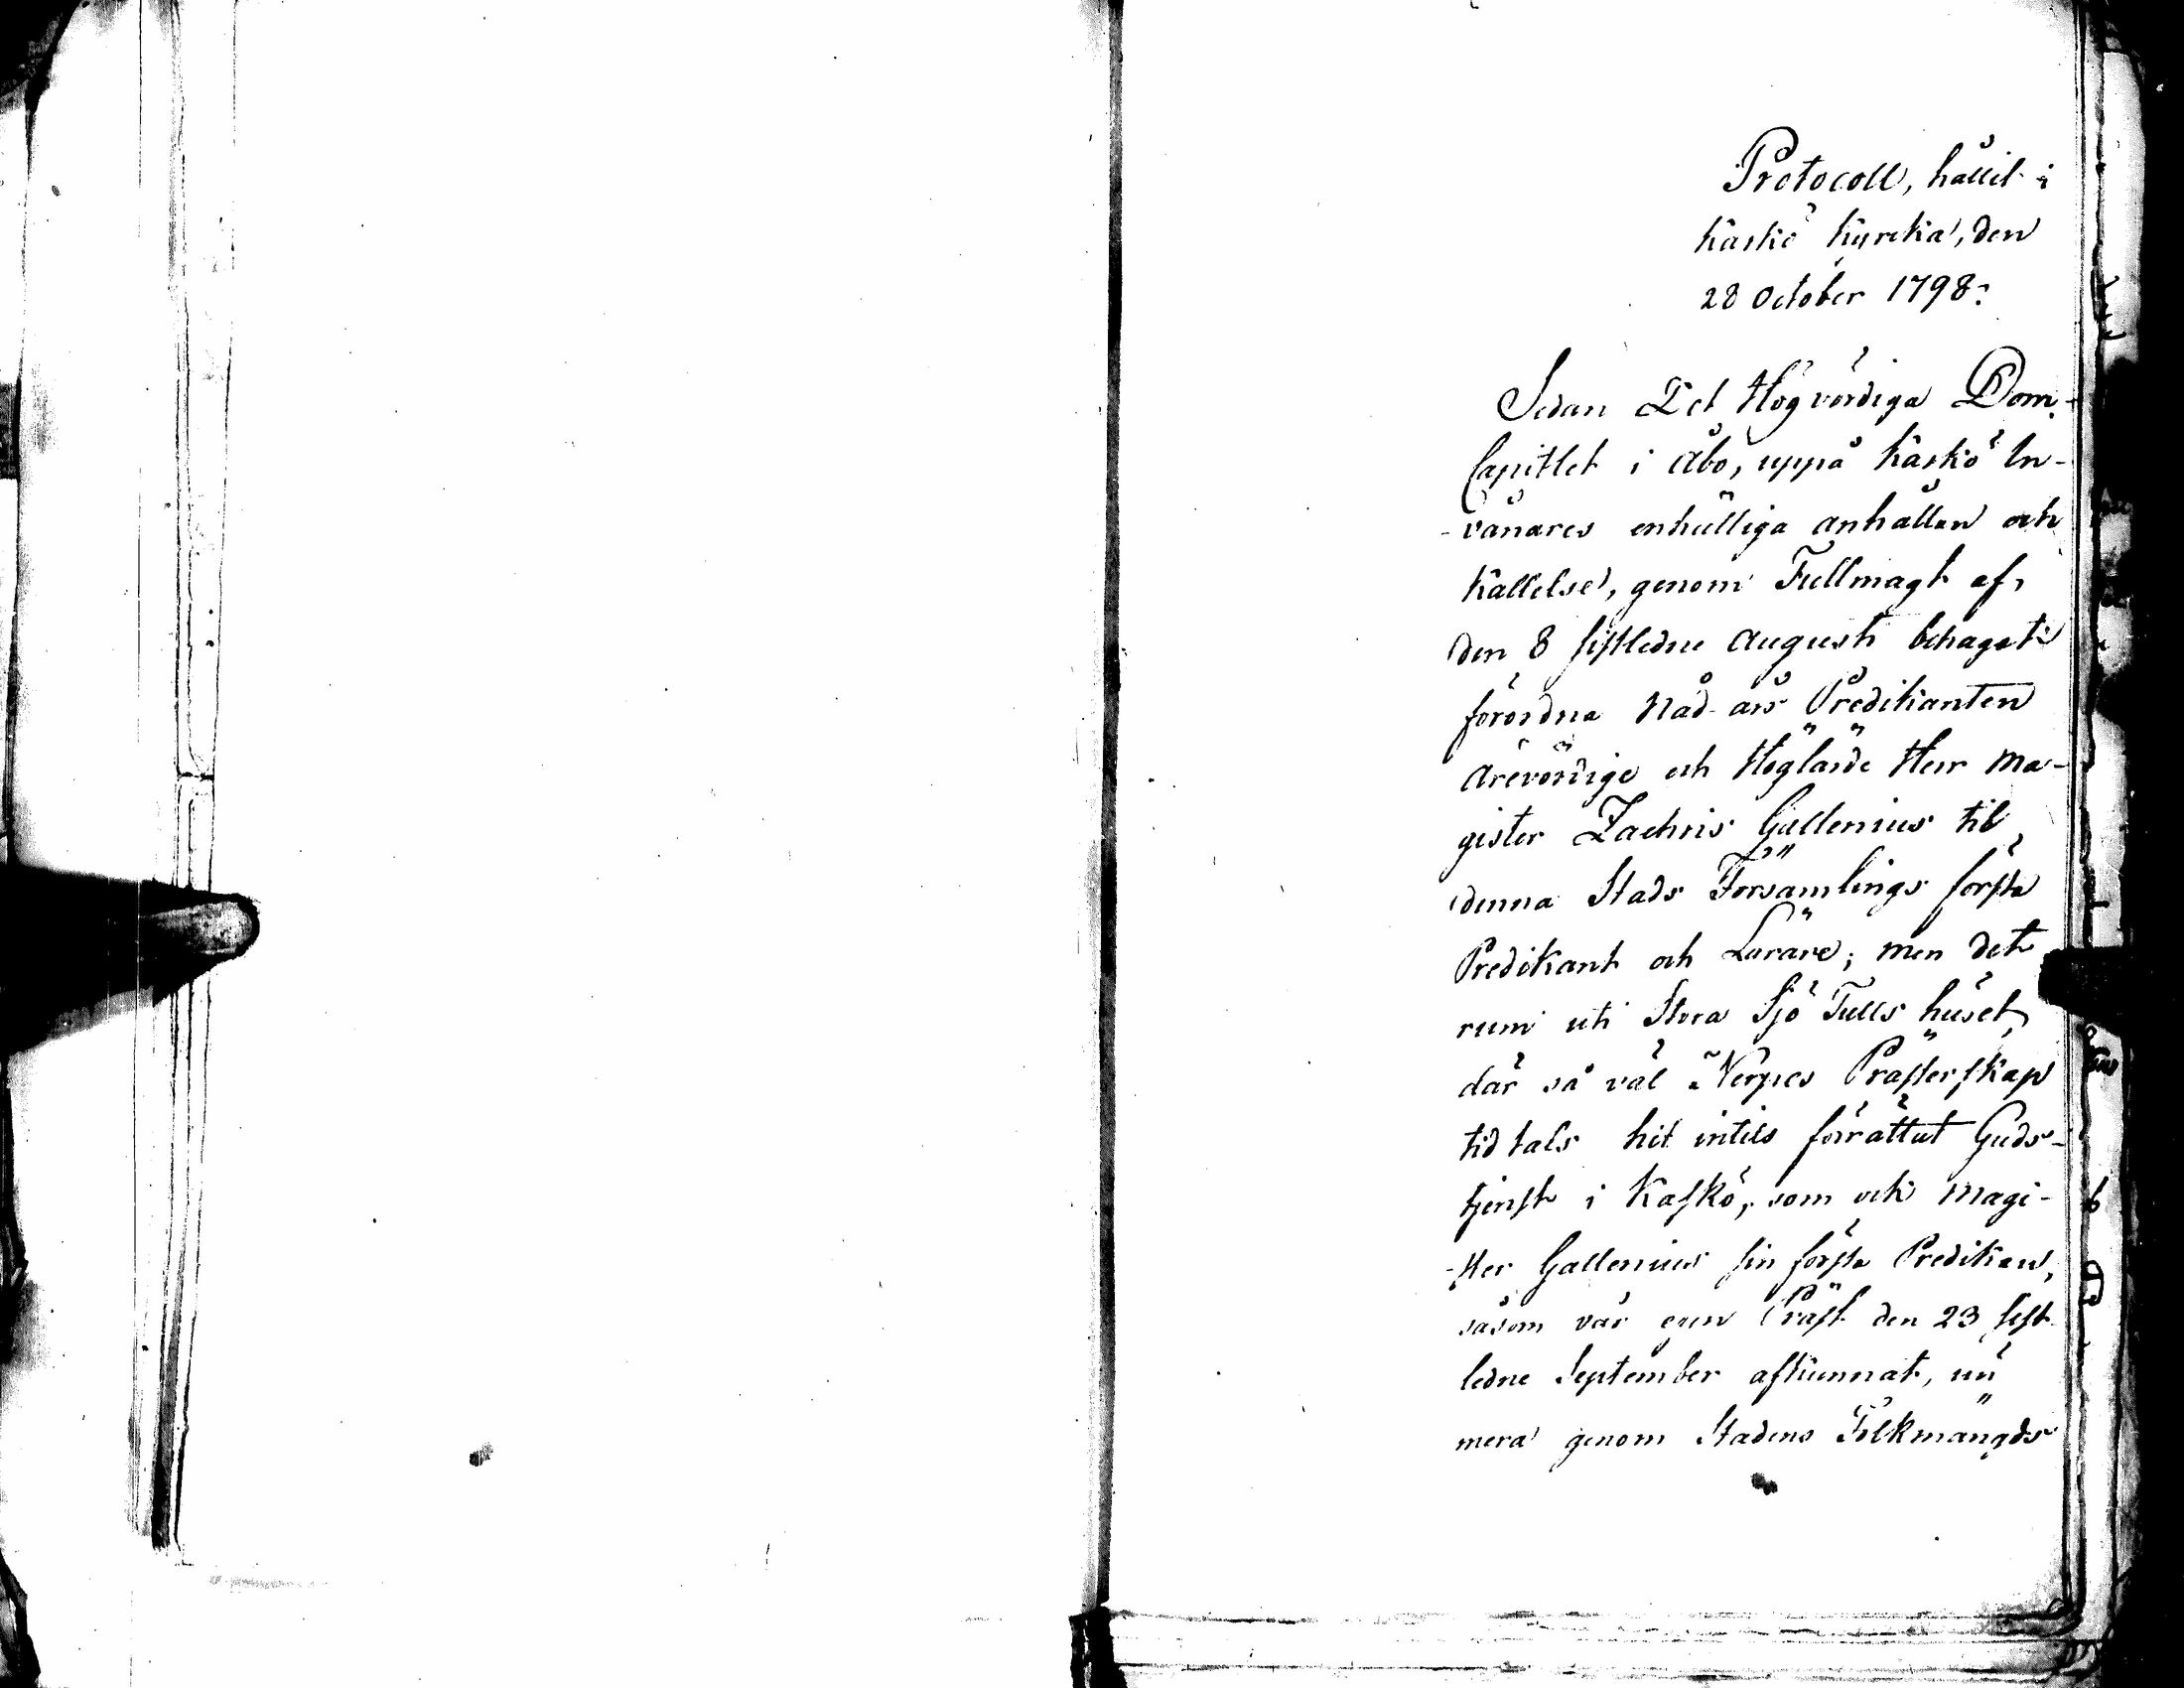 Protocoll, hållit i
Kaskö Kyrcka, den
28 October 1798:
Sedan Det Högvördiga Dom-
Capitlet i Åbo, uppå Kaskö In-
-vånares enhälliga anhållan och
Kallelse, genom Fullmagt af
den 8 sistledne Augusti behagat
förordna Nåd-års Predikanten
Ärevördige och Höglärde Herr Ma-
gister Zachris Gallenius til
denna Stads Församlings första
Predikant och Lärare; men det
rum uti Stora Sjö Tulls huset,
där så väl Nerpes Prästerskap
tid tals hit intils förrättat Guds-
tjenst i Kaskö, som ock Magi-
-ster Gallenius sin första Predikan,
såsom vår egen Präst den 23 sist-
ledne September aflkunnat, nu
mera genom Stadens Folkmängds